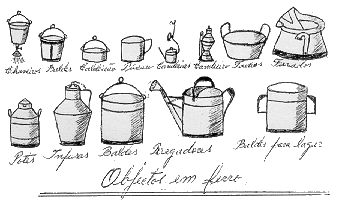 Chuveiros Baldes Caldeirão Púcaro Candeias Candeeiro Tachos Fervedor
Potes Infusas Baldes Regadores Baldes para lagar
Objectos em ferro